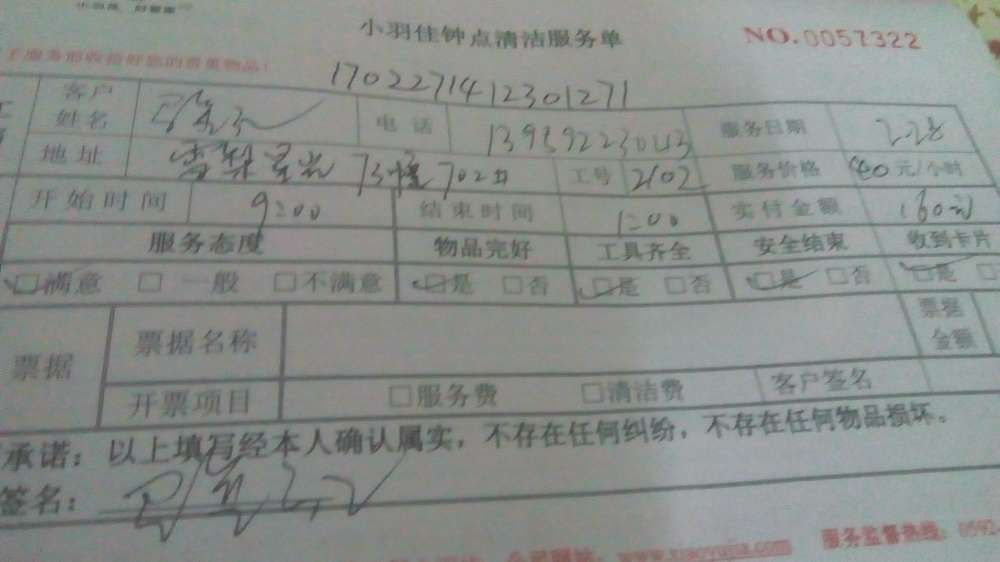 小羽佳钟点清洁服务单 NO.0057322
1702271412301271
客户姓名 电话 服务日期 2.28
地址 702 工号 2102 服务价格 40元/小时
开始时间 9:00 结束时间 1:00 实付金额 160元
服务态度 物品完好 工具齐全 安全结束 收到卡片
□满意 □一般 □不满意 □是 □否 □是 □否 □是 □否 □是
票据 票据名称 票据金额
开票项目 □服务费 □清洁费 客户签名
承诺：以上填写经本人确认属实，不存在任何纠纷，不存在任何物品损坏。
签名：
www.xiaoyujia.com 服务监督热线：0592-